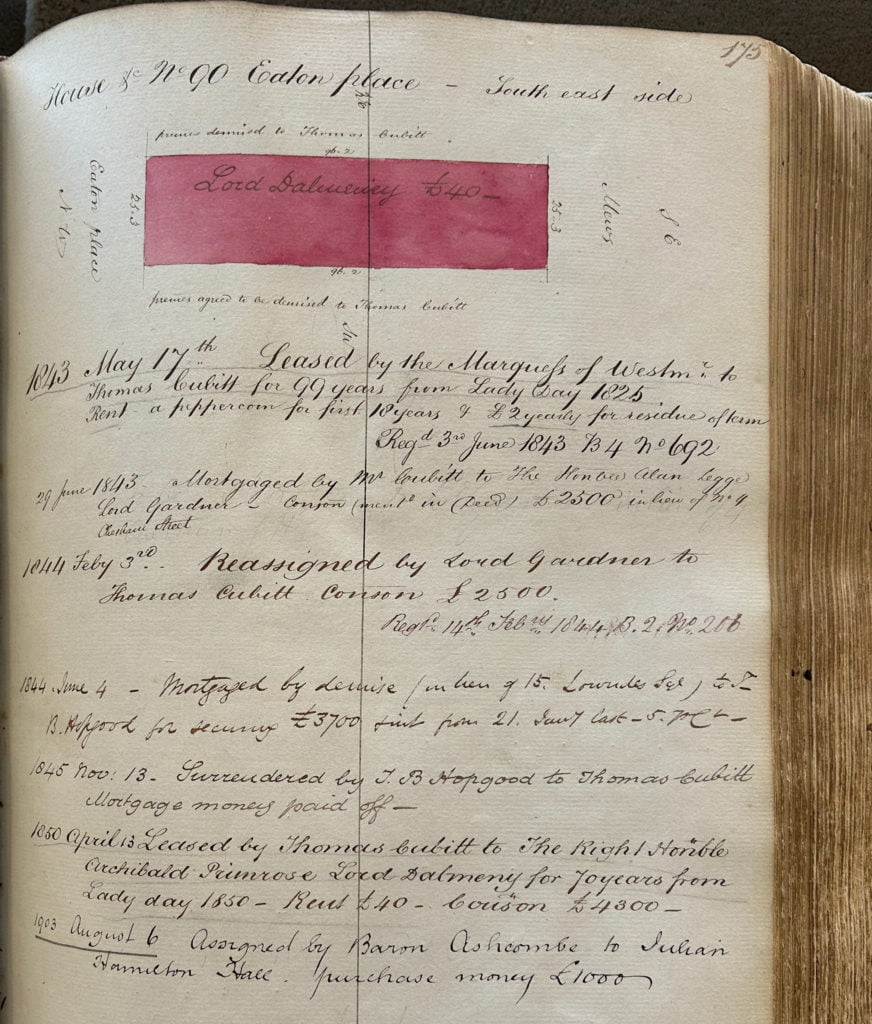 175
House &c No 90 Eaton place – South east side
premes demised to Thomas Cubitt
96.2
Lord Dalmeney £40 –
25.3
Eaton place
N W
25.3
Mews
S E
96.2
premes agreed to be demised to Thomas Cubitt
1843 May 17th Leased by the Marquess of Westmr. to
Thomas Cubitt for 99 years from Lady Day 1825
Rent – a peppercorn for first 18 years & £2 yearly for residue of term
Regd 3rd June 1843 B 4 No 692
29 June 1843 – Mortgaged by Mr Cubitt to The Honble Alan Legge
Lord Gardner – Conson (mentd in Deed) £2500 in lieu of No 9
Chesham Street
1844 Feby 3rd. Reassigned by Lord Gardner to
Thomas Cubitt Conson £2500.
Regd. 14th Feby 1844 B. 2. No. 206
1844 June 4 – Mortgaged by demise (in lieu of 15. Lowndes Sqe) to T–
B. Hopgood for securing £3700 & int from 21. Jany last – 5. P Ct –
1845 Nov: 13 – Surrendered by T. B Hopgood to Thomas Cubitt
Mortgage money paid off –
1850 April 13 Leased by Thomas Cubitt to The Right Honble
Archibald Primrose Lord Dalmeny for 70 years from
Lady day 1850 – Rent £40 – Conson £4300 –
1903 August 6 Assigned by Baron Ashcombe to Julian
Hamilton Hall. purchase money £1000